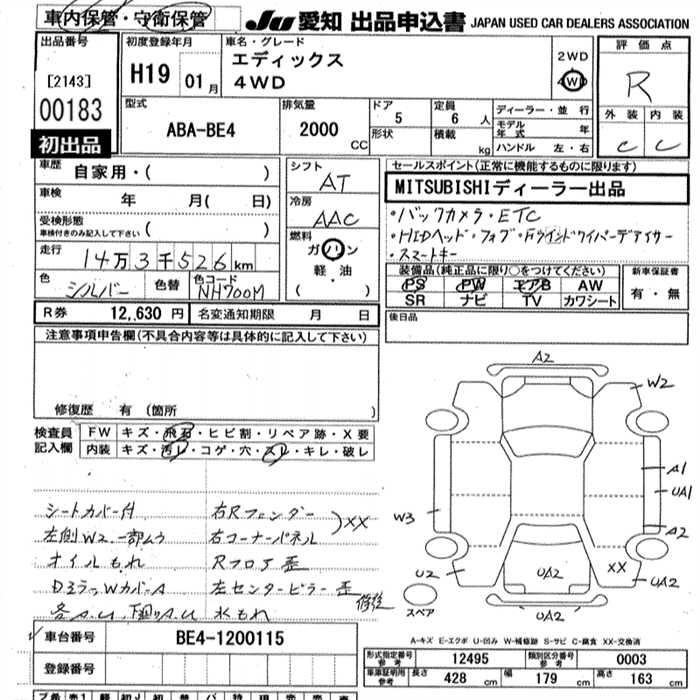 車内保管・守衛保管
JU 愛知 出品申込書 JAPAN USED CAR DEALERS ASSOCIATION
出品番号
[2143]
00183
初出品
初度登録年月
H19 01月
車名・グレード
エディックス
4WD
2WD
4WD
評価点
R
外装 内装
C C
型式
ABA-BE4
排気量
2000 CC
ドア
5
形状
定員
6 人
積載
kg
ディーラー・並行
モデル年式 年
ハンドル 左・右
車歴
自家用・( )
車検
年 月( 日)
受検形態
車検付きのみ記入して下さい ( )
走行
14万3千526km
色
シルバー
色替
色コード
NH700M
シフト
AT
冷房
AAC
燃料
ガソリン
軽・油
( )
セールスポイント(正常に機能するものに限ります)
MITSUBISHIディーラー出品
・バックカメラ・ETC
・HIDヘッド・フォグ・Fウインドワイパーデアイサー
・スマートキー
装備品(純正品に限り○をつけてください)
PS PW エアB AW
SR ナビ TV カワシート
新車保証書
有・無
R券 12,630 円
名変通知期限 月 日
後日品
注意事項申告欄(不具合内容等は具体的に記入して下さい)
修復歴 有 (箇所 )
検査員記入欄
FW キズ・飛石・ヒビ割・リペア跡・X要
内装 キズ・汚レ・コゲ・穴・スレ・キレ・破レ
シートカバー付
左側W2.一部ムラ
オイルもれ
Dミラーwカバー A
各A.U 下廻りA.U 水もれ
右Rフェンダー
右コーナーパネル
) XX
Rフロア歪
左センターピラー歪
修後
A2
W2
A1
UA1
A2
W3
U2
UA2
XX
UA2
UA2
スペア
車台番号 BE4-1200115
登録番号
A-キズ E-エクボ U-凹み W-補修跡 S-サビ C-腐食 XX-交換済
形式指定番号 参考 12495
類別区分番号 参考 0003
車庫証明用 参考
長さ 428 cm
幅 179 cm
高さ 163 cm